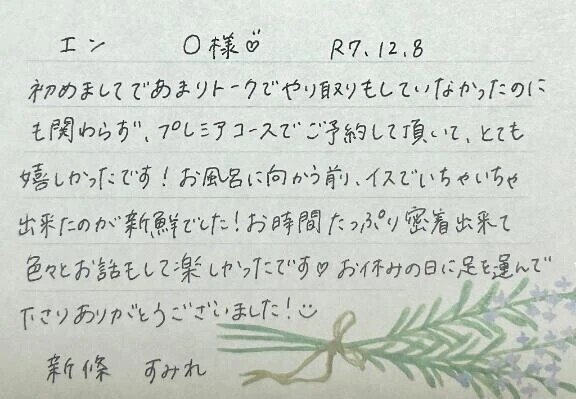 エン　〇様♡　R7.12.8
初めましてであまりトークでやり取りもしていなかったのに
も関わらず、プレミアコースでご予約して頂いて、とても
嬉しかったです！お風呂に向かう前、イスでいちゃいちゃ
出来たのが新鮮でした！お時間たっぷり密着出来て
色々とお話もして楽しかったです♡お休みの日に足を運んで
下さりありがとうございました！☺
新條　すみれ